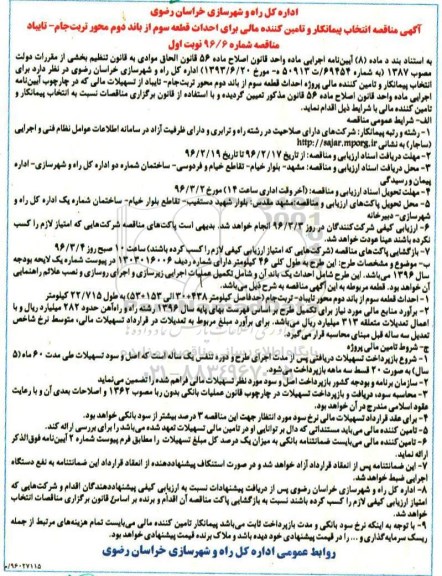 اداره کل راه و شهرسازی خراسان رضوی
آگهی مناقصه انتخاب پیمانکار و تامین کننده مالی برای احداث قطعه سوم از باند دوم محور تربت‌جام- تایباد
مناقصه شماره ۹۶/۶ نوبت اول
به استناد بند د ماده (۸) آیین‌نامه اجرایی ماده واحد قانون اصلاح ماده ۵۶ قانون الحاق موادی به قانون تنظیم بخشی از مقررات دولت
مصوب ۱۳۸۷ (به شماره ۶۹۴۵۴/ت ۵۰۹۱۳ ه- مورخ ۱۳۹۳/۶/۲۰) اداره کل راه و شهرسازی خراسان رضوی در نظر دارد برای
انتخاب پیمانکار و تامین کننده مالی پروژه احداث قطعه سوم از باند دوم محور تربت‌جام- تایباد از تسهیلات مالی که در چارچوب آیین‌نامه
اجرایی ماده واحد قانون اصلاح ماده ۵۶ قانون مذکور تعیین گردیده و با استفاده از قانون برگزاری مناقصات نسبت به انتخاب پیمانکار و
تامین کننده مالی با شرایط ذیل اقدام نماید.
الف- شرایط عمومی مناقصه
۱- رشته و رتبه پیمانکار: شرکت‌های دارای صلاحیت در رشته راه و ترابری و دارای ظرفیت آزاد در سامانه اطلاعات عوامل نظام فنی و اجرایی
(ساجار) به نشانی http://sajar.mporg.ir
۲- مهلت دریافت اسناد ارزیابی و مناقصه: از تاریخ ۹۶/۲/۱۷ تا تاریخ ۹۶/۲/۱۹
۳- محل دریافت اسناد ارزیابی و مناقصه: مشهد- بلوار خیام- تقاطع خیام و فردوسی- ساختمان شماره دو اداره کل راه و شهرسازی- اداره
پیمان و رسیدگی
۴- مهلت تحویل اسناد ارزیابی و مناقصه: (آخر وقت اداری ساعت ۱۴) مورخ ۹۶/۳/۲
۵- محل تحویل پاکت‌های ارزیابی و مناقصه: مشهد مقدس- بلوار شهید دستغیب- تقاطع بلوار خیام- ساختمان شماره یک اداره کل راه و
شهرسازی- دبیرخانه
۶- ارزیابی کیفی شرکت‌کنندگان در روز ۹۶/۳/۳ انجام خواهد شد. بدیهی است پاکت‌های مناقصه شرکت‌هایی که امتیاز لازم را کسب
نکرده باشند عینا عودت خواهد شد.
۷- بازگشایی پاکت‌های مناقصه (شرکت‌هایی که امتیاز ارزیابی کیفی لازم را کسب کرده باشند) ساعت ۱۰ صبح روز ۹۶/۳/۴
ب- موضوع و مشخصات طرح: این طرح به طول کلی ۴۶ کیلومتر دارای شماره ردیف ۱۳۰۳۰۱۶۰۰۶ در پیوست شماره یک لایحه بودجه
سال ۱۳۹۶ می‌باشد. این طرح شامل احداث یک باند آن و شامل تکمیل عملیات اجرایی زیرسازی و اجرای روسازی و نصب علائم راهنمایی
آن خواهد بود. قطعه مربوطه به این آگهی مناقصه به شرح ذیل می‌باشد.
۱- احداث قطعه سوم از باند دوم محور تایباد- تربت‌جام (حدفاصل کیلومتر ۳۰۰+۴۳۸ الی ۱۵۳+۵۳) به طول ۲۲/۷۱۵ کیلومتر
۲- برآورد منابع مالی مورد نیاز برای تکمیل طرح بر اساس فهرست بهای پایه سال ۱۳۹۶ رشته راه و راه‌آهن حدود ۲۸۲ میلیارد ریال و با
اعمال تعدیلات متعلقه ۳۱۳ میلیارد ریال می‌باشد. برای برآورد مبلغ مربوط به تعدیلات در قرارداد تسهیلات مالی، متوسط نرخ شاخص
تعدیل سه ساله قبل مبنای محاسبه قرار می‌گیرد.
ج- شروط تامین مالی پروژه
۱- شروع بازپرداخت تسهیلات دریافتی پس از مدت اجرای طرح و دوره تنفس یک ساله است که اصل و سود تسهیلات طی مدت ۶۰ ماه (۵
سال) به صورت ۲۰ قسط سه ماهه بازپرداخت می‌شود.
۲- سازمان برنامه و بودجه کشور بازپرداخت اصل و سود مورد نظر تسهیلات مالی فراهم شده را تضمین می‌نماید
۳- محاسبه سود، دریافت و بازپرداخت تسهیلات در چارچوب قانون عملیات بانکی بدون ربا مصوب ۱۳۶۲ و اصلاحات بعدی آن و با رعایت
عقود اسلامی مندرج در آن خواهد بود.
۴- برای عقد قرارداد تسهیلات مالی نرخ سود مورد انتظار جهت این مناقصه ۳ درصد بیشتر از سود بانکی خواهد بود.
۵- تامین کننده مالی می‌باید مستنداتی که دال بر توانایی او در تامین مالی تسهیلات تعهد شده می‌باشد را برای بررسی ارائه کند.
۶- تامین کننده مالی می‌بایست ضمانتنامه بانکی به میزان یک درصد کل مبلغ تسهیلات را مطابق فرم پیوست شماره ۲ آیین‌نامه فوق‌الذکر
ارائه نماید.
۷- این ضمانتنامه پس از انعقاد قرارداد آزاد خواهد شد و در صورت استنکاف پیشنهاددهنده از انعقاد قرارداد این ضمانتنامه به نفع دستگاه
اجرایی ضبط خواهد شد.
۸- اداره کل راه و شهرسازی خراسان رضوی پس از دریافت پیشنهادات نسبت به ارزیابی کیفی پیشنهاددهندگان اقدام و شرکت‌هایی که
امتیاز ارزیابی کیفی لازم را کسب کرده باشند نسبت به بازگشایی پاکت مناقصه آن اقدام و برنده بر اساس قانون برگزاری مناقصات انتخاب
خواهد شد.
۹- با توجه به اینکه نرخ سود بانکی و مدت بازپرداخت ثابت می‌باشد پیمانکار تامین کننده مالی می‌بایست تمام هزینه‌های مرتبط از جمله
ریسک سرمایه‌گذاری و ... را در قیمت پیشنهادی خود دیده باشد و ملاک برنده قیمت پیشنهادی خواهد بود.
روابط عمومی اداره کل راه و شهرسازی خراسان رضوی
۹۶۰۲۷۱۱۵/م
۰۲۱-۸۸۳۴۹۶۷۰